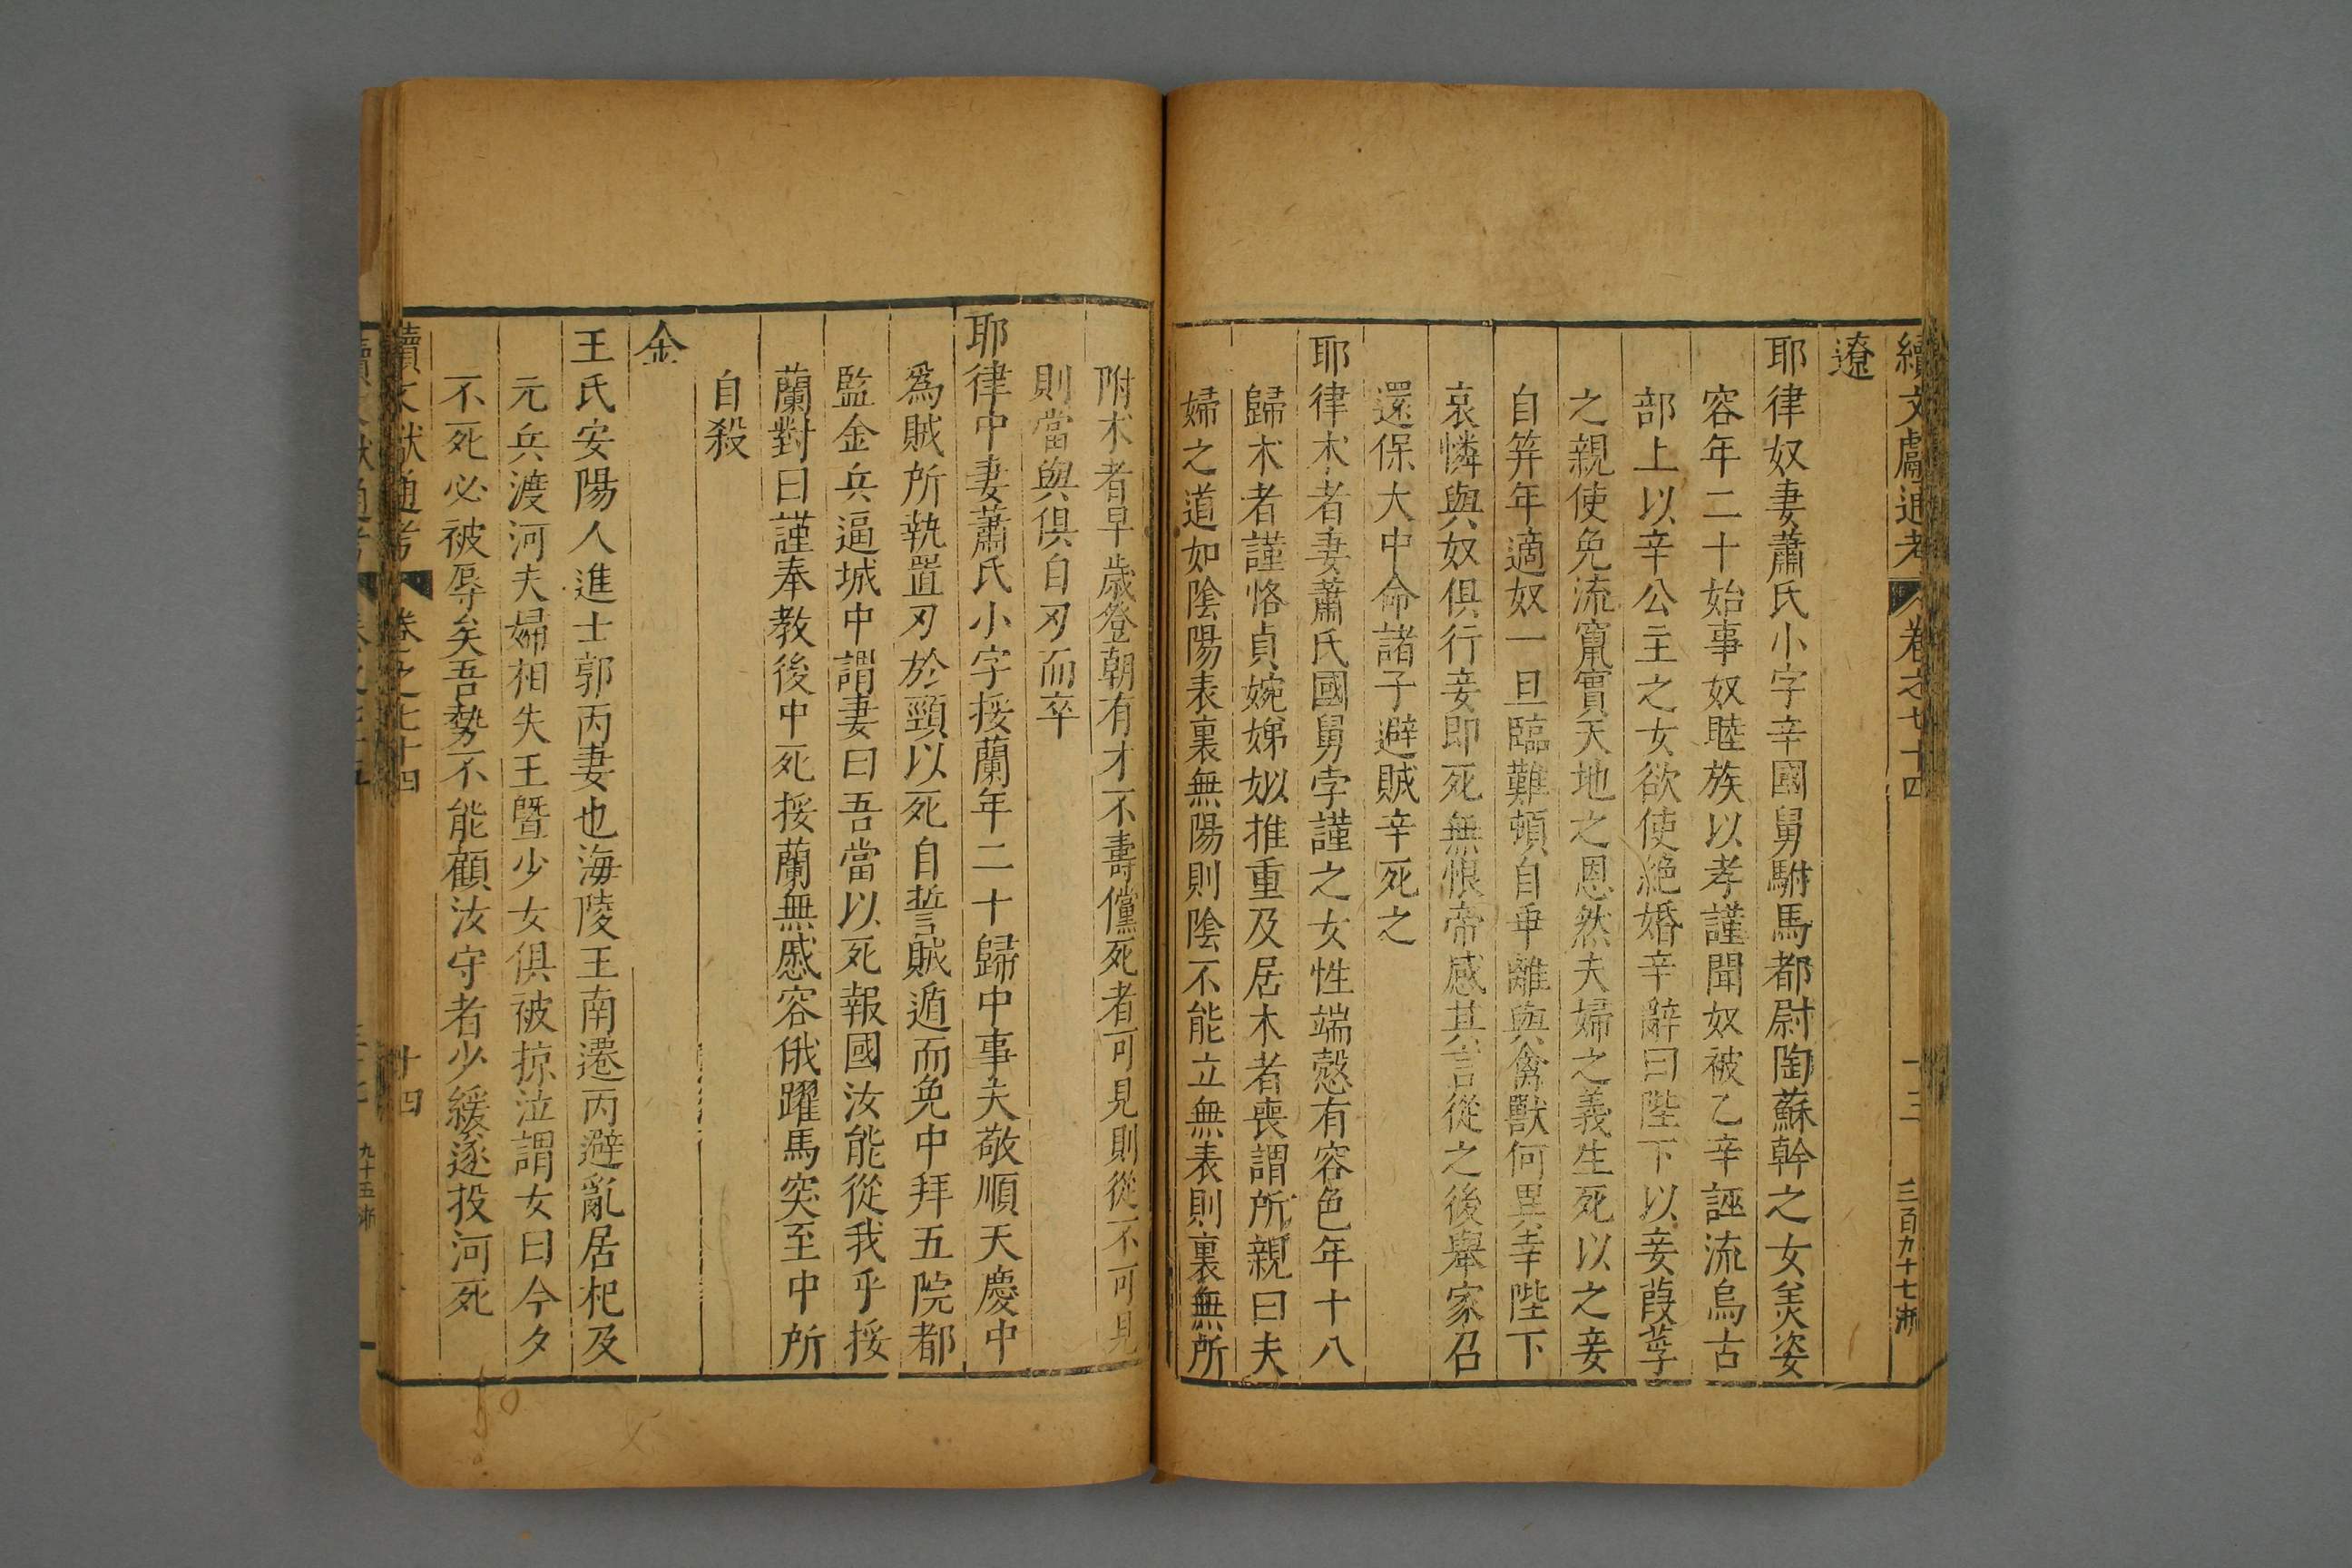 續文獻通考 卷之七十四 十三 三百九十七 浙
遼
耶律奴妻蕭氏小字辛國舅駙馬都尉陶蘇斡之女美姿
容年二十始事奴睦族以孝謹聞奴被乙辛誣流烏古
部上以辛公主之女欲使絶婚辛辭曰陛下以妾葭莩
之親使免流竄實天地之恩然夫婦之義生死以之妾
自笄年適奴一旦臨難頓自乖離與禽獸何異幸陛下
哀憐與奴俱行妾即死無恨帝感其言從之後舉家召
還保大中命諸子避賊辛死之
耶律朮者妻蕭氏國舅孛謹之女性端慤有容色年十八
歸朮者謹恪貞婉娣姒推重及居木者喪謂所親曰夫
婦之道如陰陽表裏無陽則陰不能立無表則裏無所
附朮者早歲登朝有才不壽儻死者可見則從不可見
則當與俱自刃而卒
耶律中妻蕭氏小字挼蘭年二十歸中事夫敬順天慶中
為賊所執置刃於頸以死自誓賊遁而免中拜五院都
監金兵逼城中謂妻曰吾當以死報國汝能從我乎挼
蘭對曰謹奉教後中死挼蘭無慼容俄躍馬突至中所
自殺
金
王氏安陽人進士郭丙妻也海陵王南遷丙避亂居杞及
元兵渡河夫婦相失王暨少女俱被掠泣謂女曰今夕
不死必被辱矣吾勢不能顧汝守者少緩遂投河死
續文獻通考 卷之七十四 十四
九十五 浙